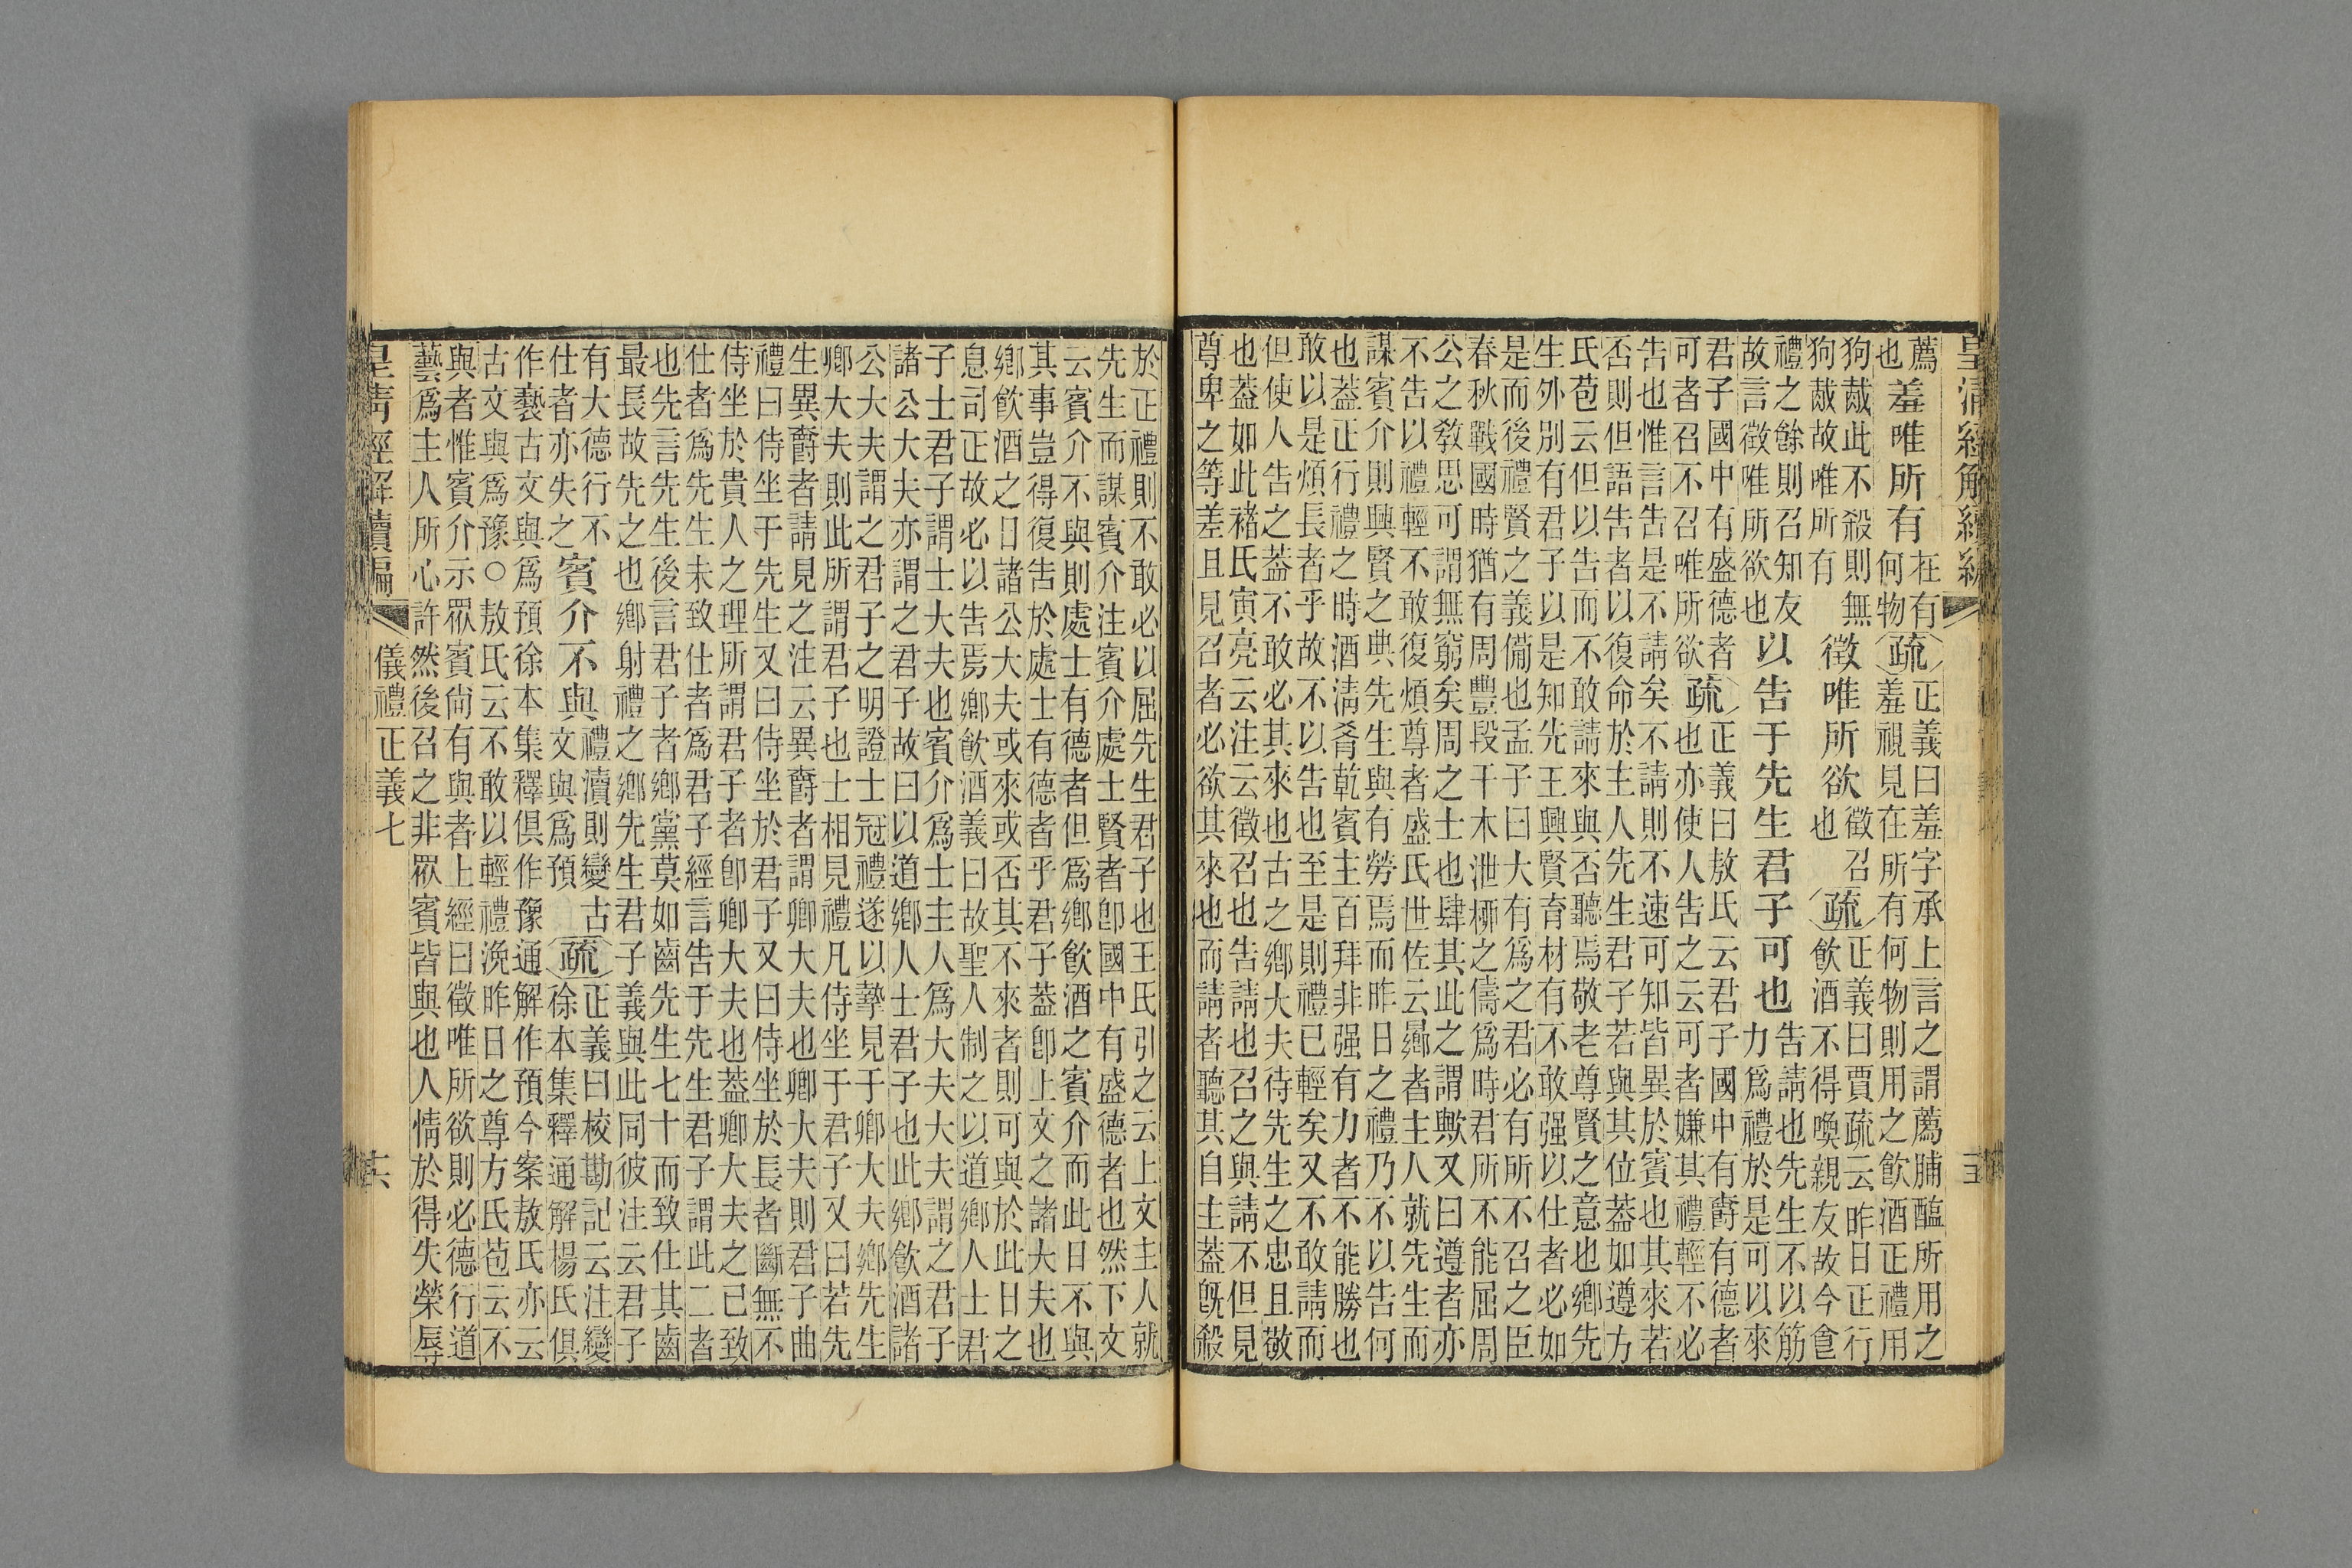 皇清經解續編
五
薦
也
羞唯所有
在有
何物
疏
正義曰羞字承上言之謂薦脯醢所用之
羞視見在所有何物則用之飲酒正禮用
狗胾此不殺則無
狗胾故唯所有
徵唯所欲
徵召
也
疏
正義曰賈疏云昨日正行
飲酒不得喚親友故今食
禮之餘則召知友
故言徵唯所欲也
以告于先生君子可也
告請也先生不以筋
力爲禮於是可以來
君子國中有盛德者
可者召不召唯所欲
疏
正義曰敖氏云君子國中有爵有德者
也亦使人告之云可者嫌其禮輕不必
告也惟言告是不請矣不請則不速可知皆異於賓也其來若
否則但語告者以復命於主人先生君子若與其位蓋如遵方
氏苞云但以告而不敢請來與否聽焉敬老尊賢之意也鄉先
生外別有君子以是知先王興賢育材有不敢强以仕者必如
是而後禮賢之義備也孟子曰大有爲之君必有所不召之臣
春秋戰國時猶有周豐段干木泄栁之儔爲時君所不能屈周
公之敎思可謂無窮矣周之士也肆其此之謂歟又曰遵者亦
不告以禮輕不敢復煩尊者盛氏世佐云曏者主人就先生而
謀賓介則興賢之典先生與有勞焉而昨日之禮乃不以告何
也蓋正行禮之時酒淸肴乾賓主百拜非强有力者不能勝也
敢以是煩長者乎故不以告也至是則禮已輕矣又不敢請而
但使人告之蓋不敢必其來也古之鄉大夫待先生之忠且敬
也蓋如此褚氏寅亮云注云徵召也告請也召之與請不但見
尊卑之等差且見召者必欲其來也而請者聽其自主蓋旣殺
於正禮則不敢必以屈先生君子也王氏引之云上文主人就
先生而謀賓介注賓介處士賢者卽國中有盛德者也然下文
云賓介不與則處士有德者但爲鄉飲酒之賓介而此日不與
其事豈得復告於處士有德者乎君子蓋卽上文之諸大夫也
鄉飲酒之日諸公大夫或來或否其不來者則可與於此日之
息司正故必以告焉鄉飲酒義曰故聖人制之以道鄉人士君
子士君子謂士大夫也賓介爲士主人爲大夫大夫謂之君子
諸公大夫亦謂之君子故曰以道鄉人士君子也此鄉飲酒諸
公大夫謂之君子之明證士冠禮遂以摯見于鄉大夫鄉先生
鄉大夫則此所謂君子也士相見禮凡侍坐于君子又曰若先
生異爵者請見之注云異爵者謂卿大夫也卿大夫則君子曲
禮曰侍坐于先生又曰侍坐於君子又曰侍坐於長者斷無不
侍坐於貴人之理所謂君子者卽卿大夫也蓋卿大夫之已致
仕者爲先生未致仕者爲君子經言告于先生君子謂此二者
也先言先生後言君子者鄉黨莫如齒先生七十而致仕其齒
最長故先之也鄉射禮之鄉先生君子義與此同彼注云君子
有大德行不
仕者亦失之
賓介不與
禮瀆則變古
文與爲預
疏
正義曰校勘記云注變
徐本集釋通解楊氏俱
作藝古文與爲預徐本集釋俱作豫通解作預今案敖氏亦云
古文與爲豫○敖氏云不敢以輕禮浼昨日之尊方氏苞云不
與者惟賓介示眾賓尙有與者上經曰徵唯所欲則必德行道
藝爲主人所心許然後召之非眾賓皆與也人情於得失榮辱
皇清經解續編
儀禮正義七
六